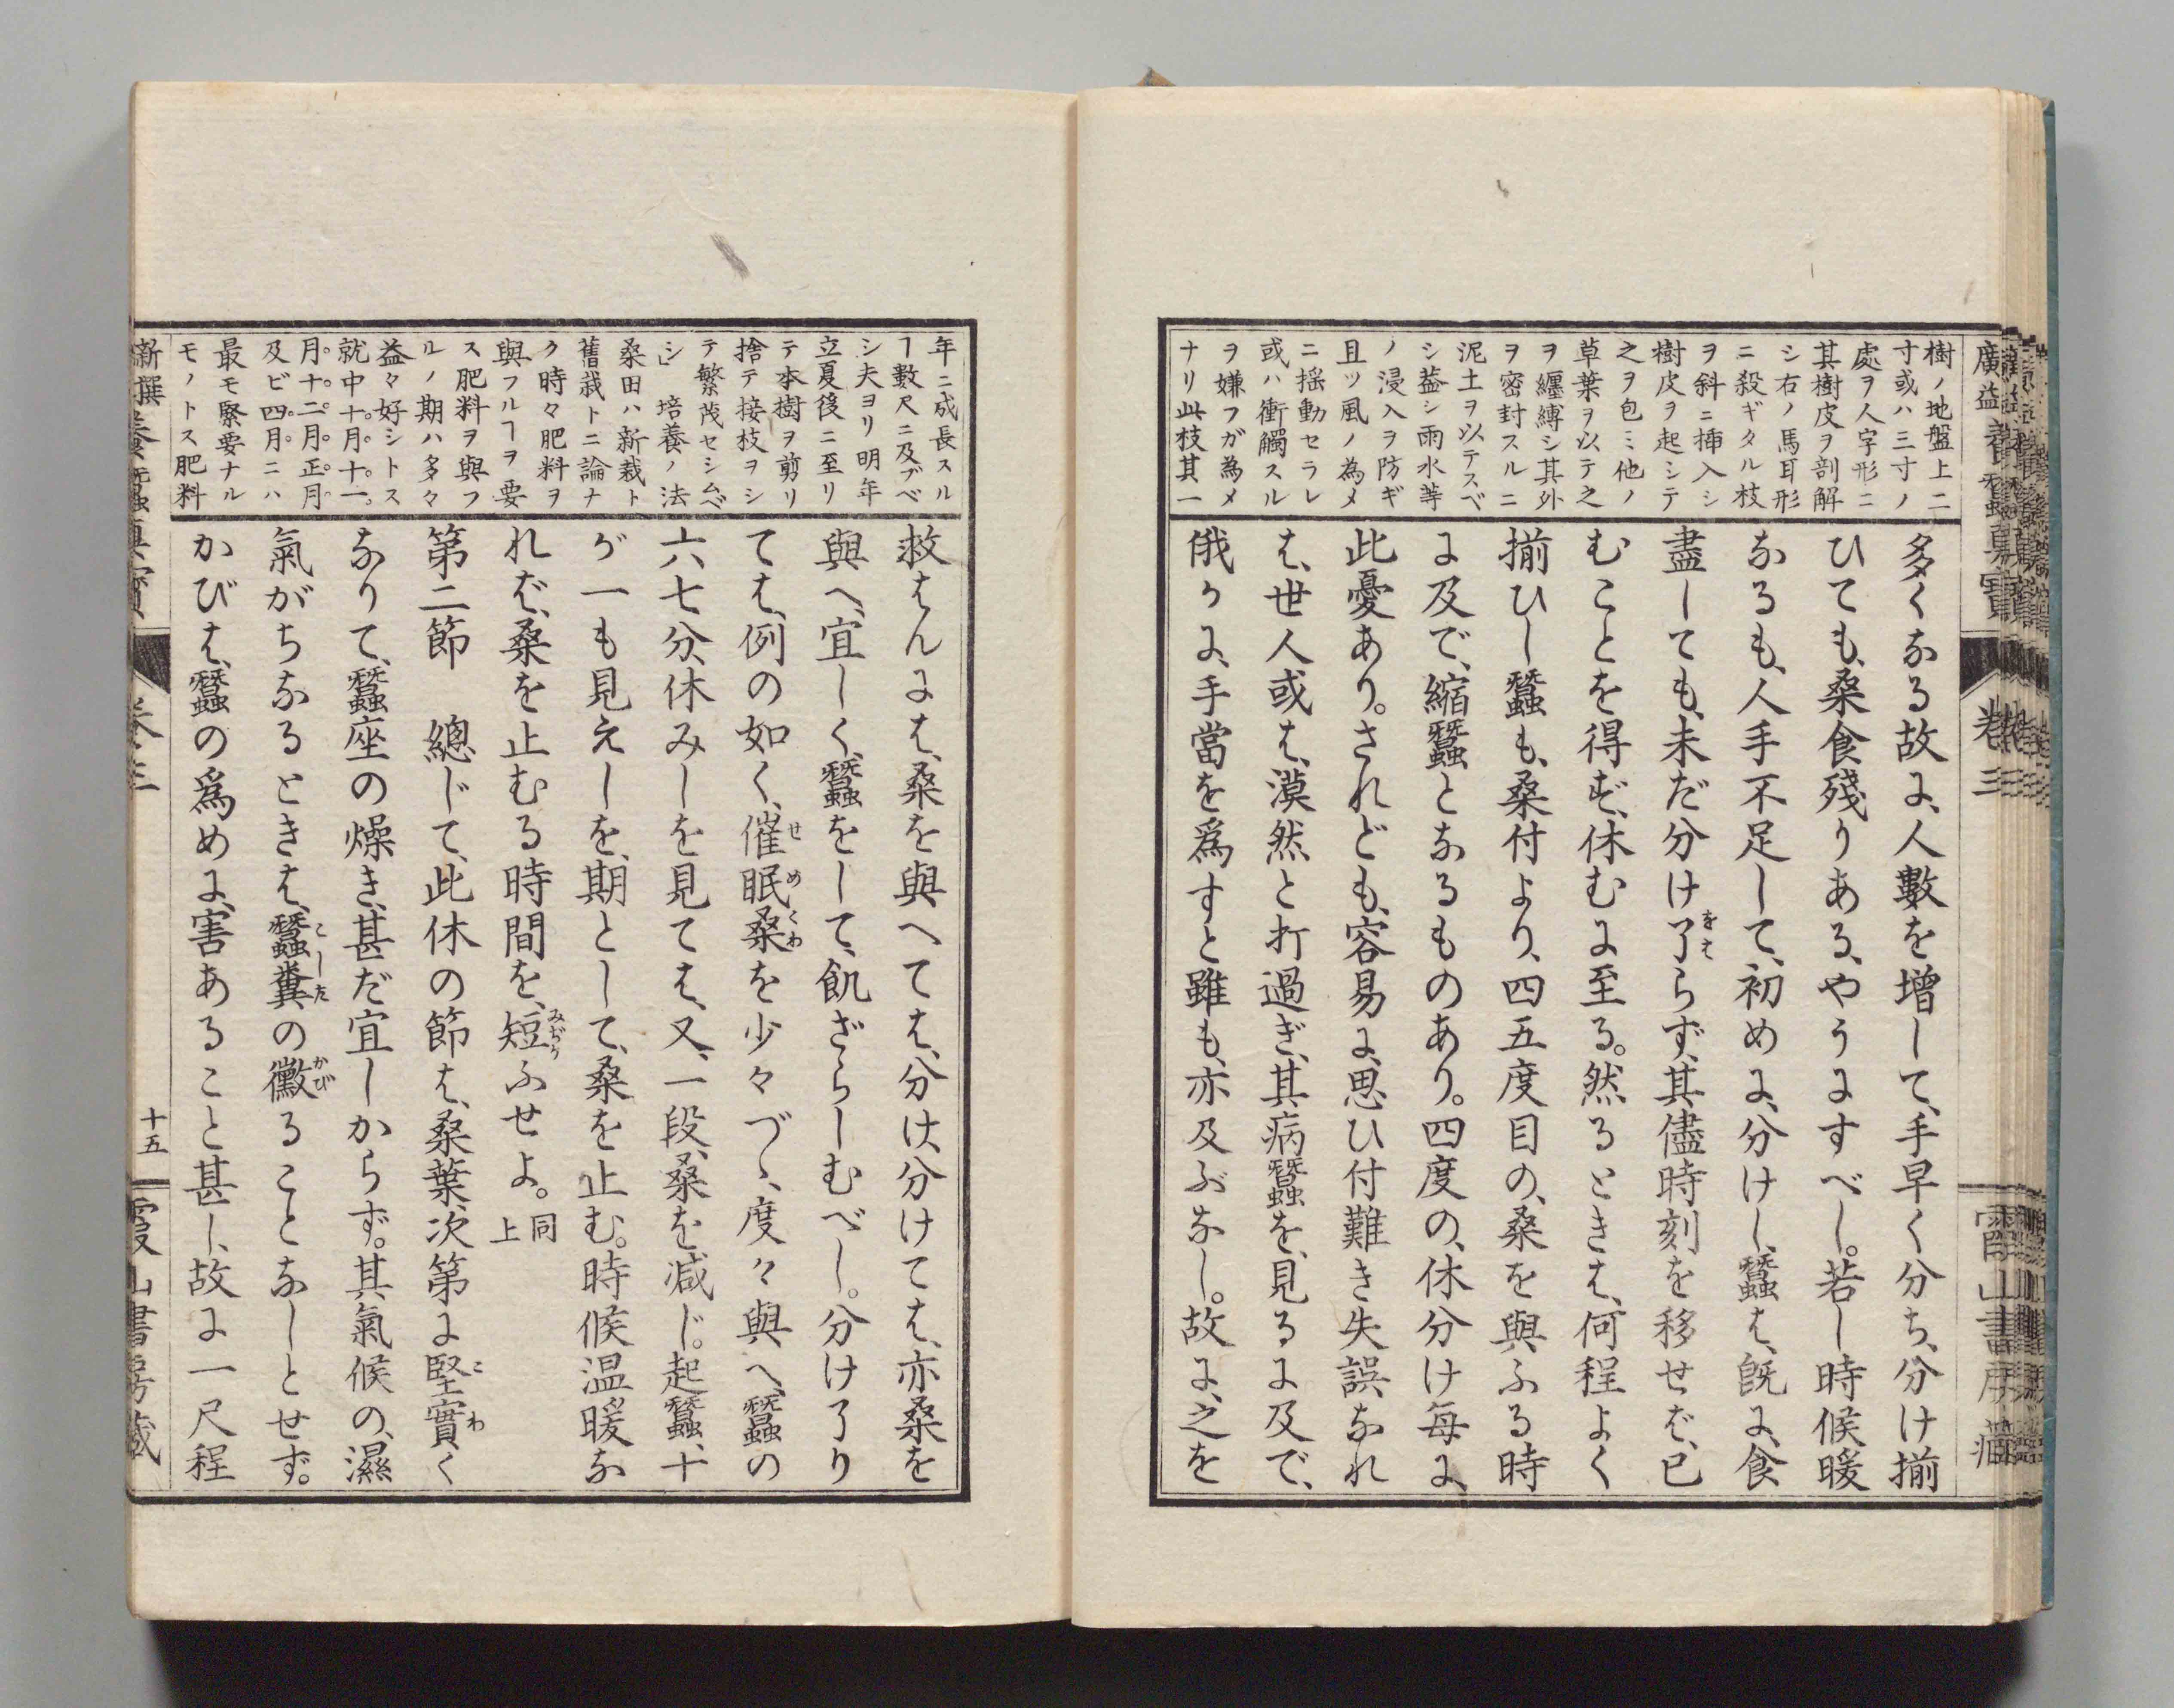 廣益養蠶眞寶
卷三
樹ノ地盤上二
寸或ハ三寸ノ
處ヲ人字形ニ
其樹皮ヲ剖解
シ右ノ馬耳形
ニ殺ギタル枝
ヲ斜ニ揷入シ
樹皮ヲ起シテ
之ヲ包ミ他ノ
草葉ヲ以テ之
ヲ纏縛シ其外
ヲ密封スルニ
泥土ヲ以テスベ
シ葢シ雨水等
ノ浸入ヲ防ギ
且ツ風ノ為メ
ニ揺動セラレ
或ハ衝觸スル
ヲ嫌フガ為メ
ナリ此枝其一
多くなる故に、人數を增して、手早く分ち、分け揃
ひても、桑食殘りある、やうにすべし。若し時候暖
なるも、人手不足して、初めに、分けし、蠶は、旣に、食
盡しても、未だ分け了らず、其儘時刻を移せば、已
をは
むことを得ず、休むに至る。然るときは、何程よく
揃ひし蠶も、桑付より、四五度目の、桑を與ふる時
に及で、縮蠶となるものあり。四度の、休分け每に、
此憂あり。されども、容易に、思ひ付難き失誤なれ
は、世人或は、漠然と打過ぎ、其病蠶を、見るに及で、
俄かに、手當を爲すと雖も、亦及ぶなし。故に、之を
年ニ成長スル
ヿ數尺ニ及ブベ
シ夫ヨリ明年
立夏後ニ至リ
テ本樹ヲ剪リ
捨テ接枝ヲシ
テ繁茂セシムベ
シ　培養ノ法
桑田ハ新栽ト
舊栽トニ論ナ
ク時々肥料ヲ
與フルヿヲ要
ス肥料ヲ與フ
ルノ期ハ多々
益々好シトス
就中十月十一
月十二月正月
及ビ四月ニハ
最モ緊要ナル
モノトス肥料
救はんには、桑を與へては、分け、分けては、亦桑を
與へ、宜しく、蠶をして、飢ざらしむべし。分け了り
ては、例の如く、催眠桑を少々づゝ、度々與へ、蠶の
せめくわ
六七分、休みしを見ては、又、一段、桑を減じ。起蠶、十
が一も見えしを、期として、桑を止む。時候温暖な
れば、桑を止むる時間を、短ふせよ。同上
みぢか
第二節　總じて、此休の節は、桑葉、次第に堅實く
こわ
なりて、蠶座の燥き、甚だ宜しからず。其氣候の、濕
氣がちなるときは、蠶糞の黴ることなしとせず。
こした
かび
かびは、蠶の爲めに、害あること甚し、故に一尺程
十五